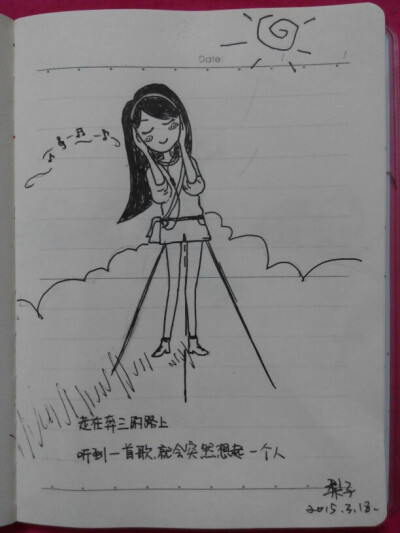 Date:
走在奔三的路上
听到一首歌,就会突然想起一个人
梨子
2015.3.18.